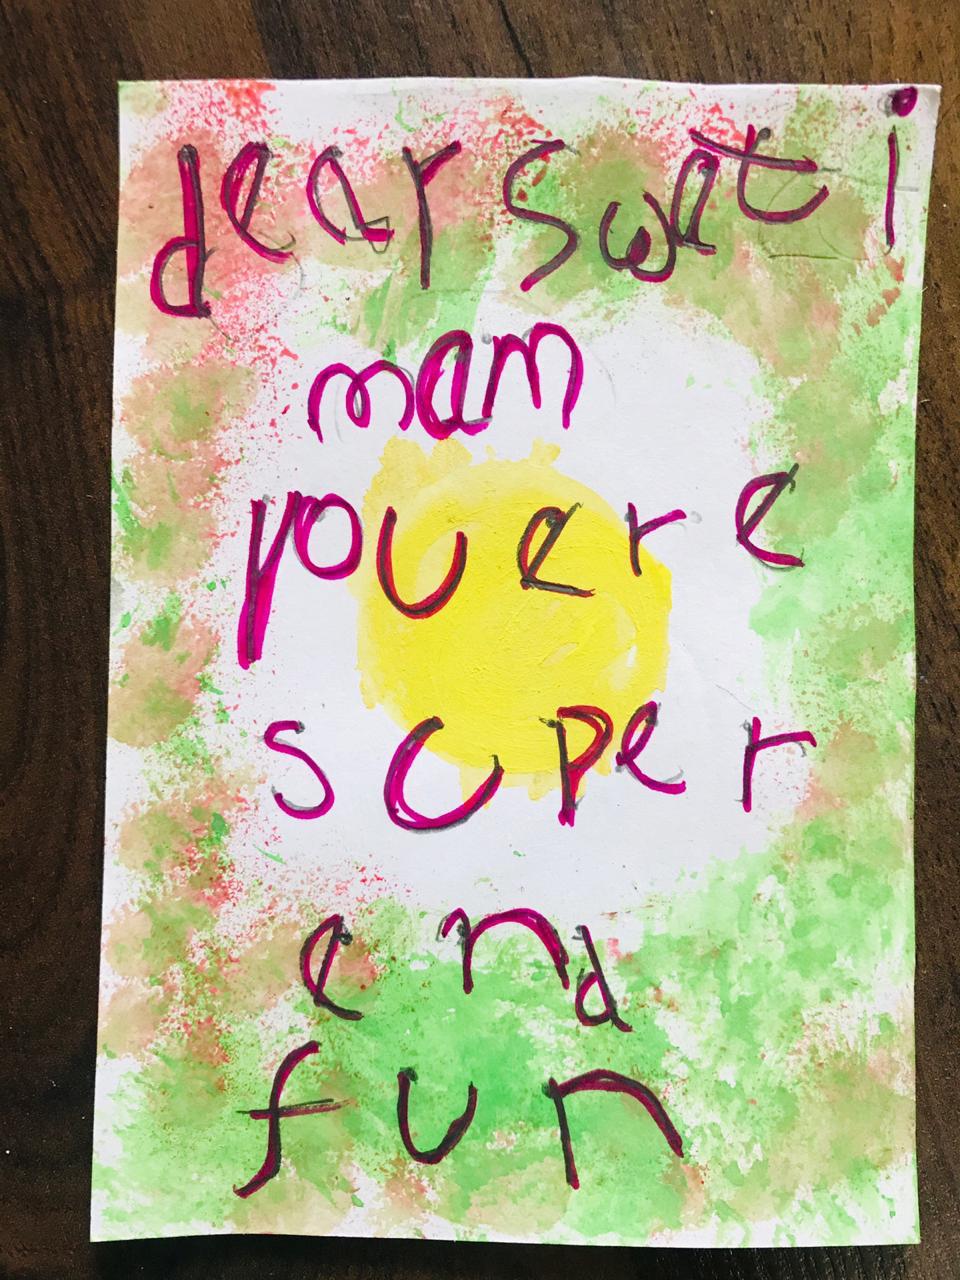 dear swati
mam
you ere
super
end
fun